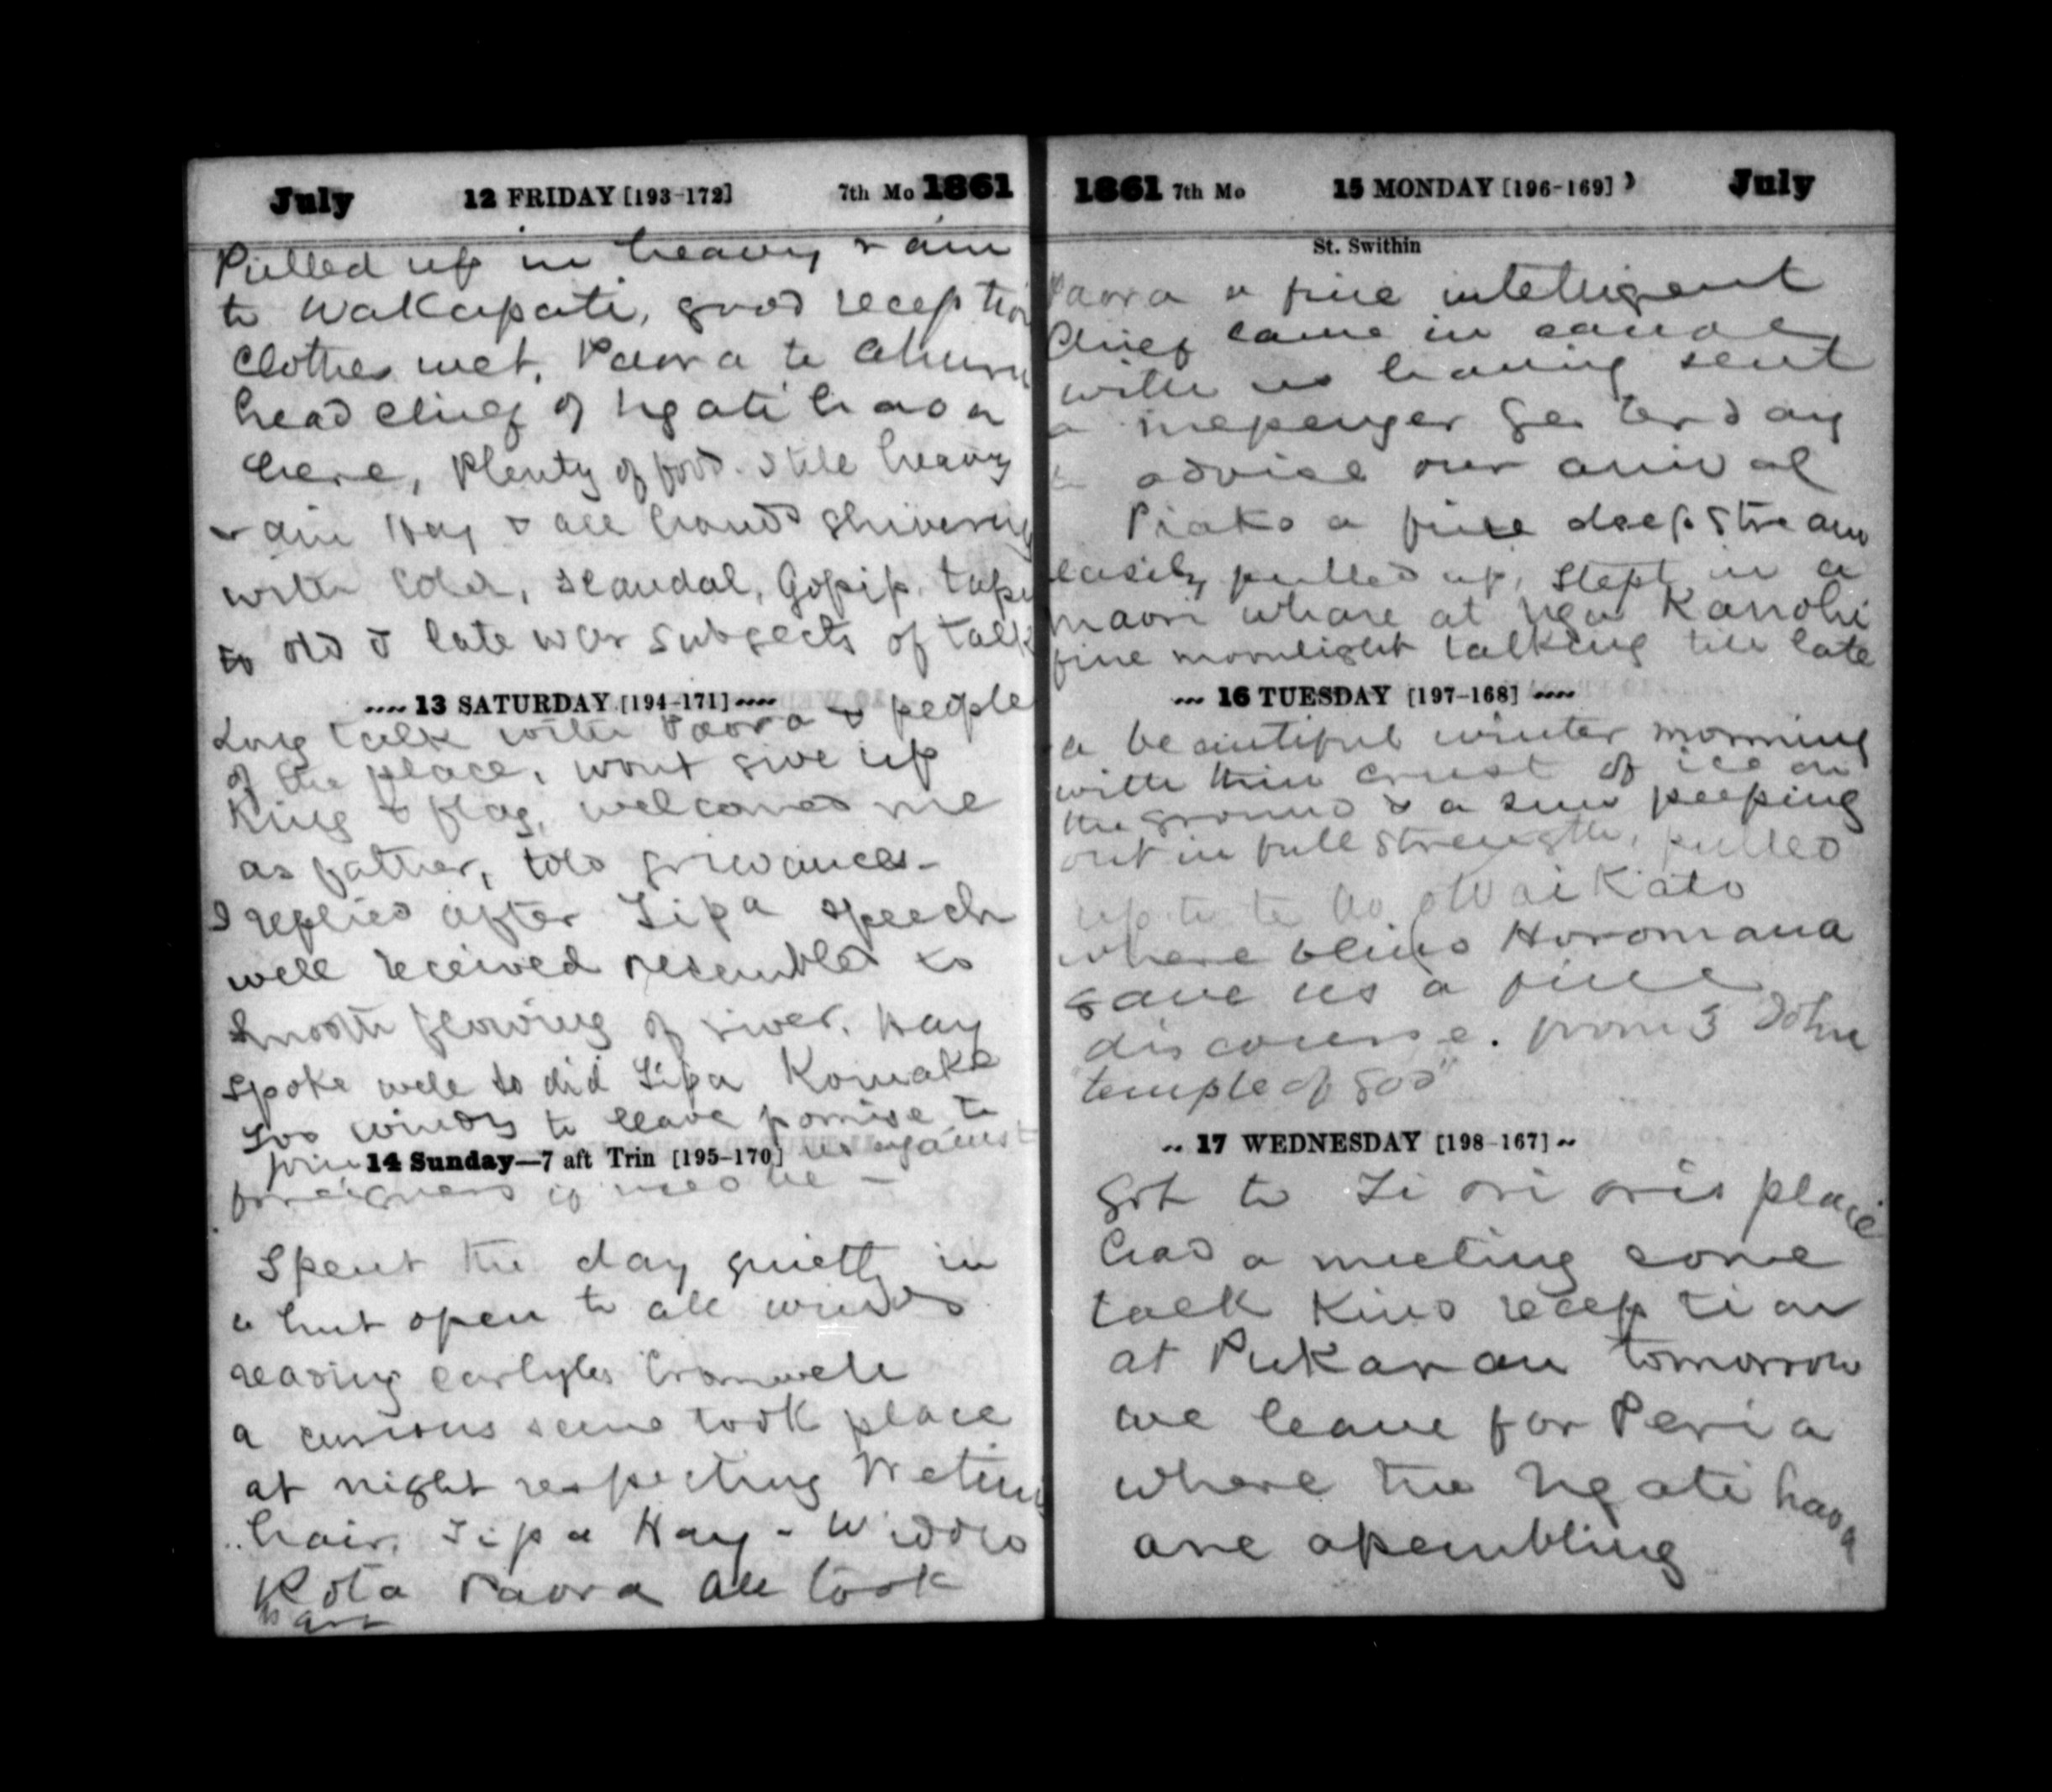 July 12 FRIDAY [193-172] 7th Mo 1861
Pulled up in heavy rain
to Wakapati, good reception
Clothes wet, Paora te Ahuru
head chief of Ngatihaoa
here, Plenty of food. Still heavy
rain Hay & all hands shivering
with Cold, scandal, Gossip, tapu
to old & late war subjects of talk
13 SATURDAY [194-171]
Long talk with Paora & people
of the place, wont give up
King & flag, welcomed me
as father, told grievances-
I replied after Tipa speech
well received resembled to
smooth flowing of river. Hay
spoke well so did Tipa Komake
Too windy to leave promise to
join us against
14 Sunday—7 aft Trin [195-170]
foreigners if need be -
Spent the day quietly in
a hut open to all winds
reading Carlyles Cromwell
a curious scene took place
at night respecting Wetini
hair, Tipa Hay - Widow
Rota Paora all took
part
1861 7th Mo 15 MONDAY [196-169] July
St. Swithin
Paora a fine intelligent
Chief came in canoe
with us having sent
a messenger yesterday
to advise our arrival
Piako a fine deep stream
easily pulled up, slept in a
maori whare at nga Kanohi
fine moonlight talking till late
16 TUESDAY [197-168]
a beautiful winter morning
with thin crust of ice on
the ground & a sun peeping
out in full strength, pulled
up to te Waikato
where blind Horomana
gave us a fine
discourse. from 3 John
"temple of God"
17 WEDNESDAY [198-167]
Got to Ti ori oris place
had a meeting some
talk Kind reception
at Pukarau tomorrow
we leave for Peria
where the Ngatihaoa
are assembling